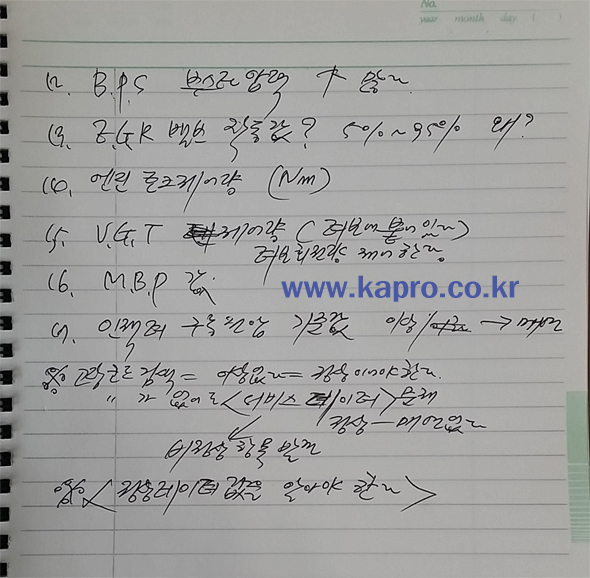 No.
year month day ( )
12. B.P.S 부스터압력 ↑ 많다
13. E.G.R 밸브 작동값? 5%~95% 왜?
14. 엔진 토크제어량 (Nm)
15. V.G.T 제어량 (터보에 붙어있다)
터보회전량 제어한다.
16. M.B.P 값.
www.kapro.co.kr
17. 인젝터 구동전압 기준값 이상 →
※ 고장코드검색 = 이상없다 = 정상이어야 한다.
〃 가 없어도 <서비스 데이터> 문제
정상 ㅡ
비정상 항목 발견
※ <정상데이터 값을 알아야 한다>